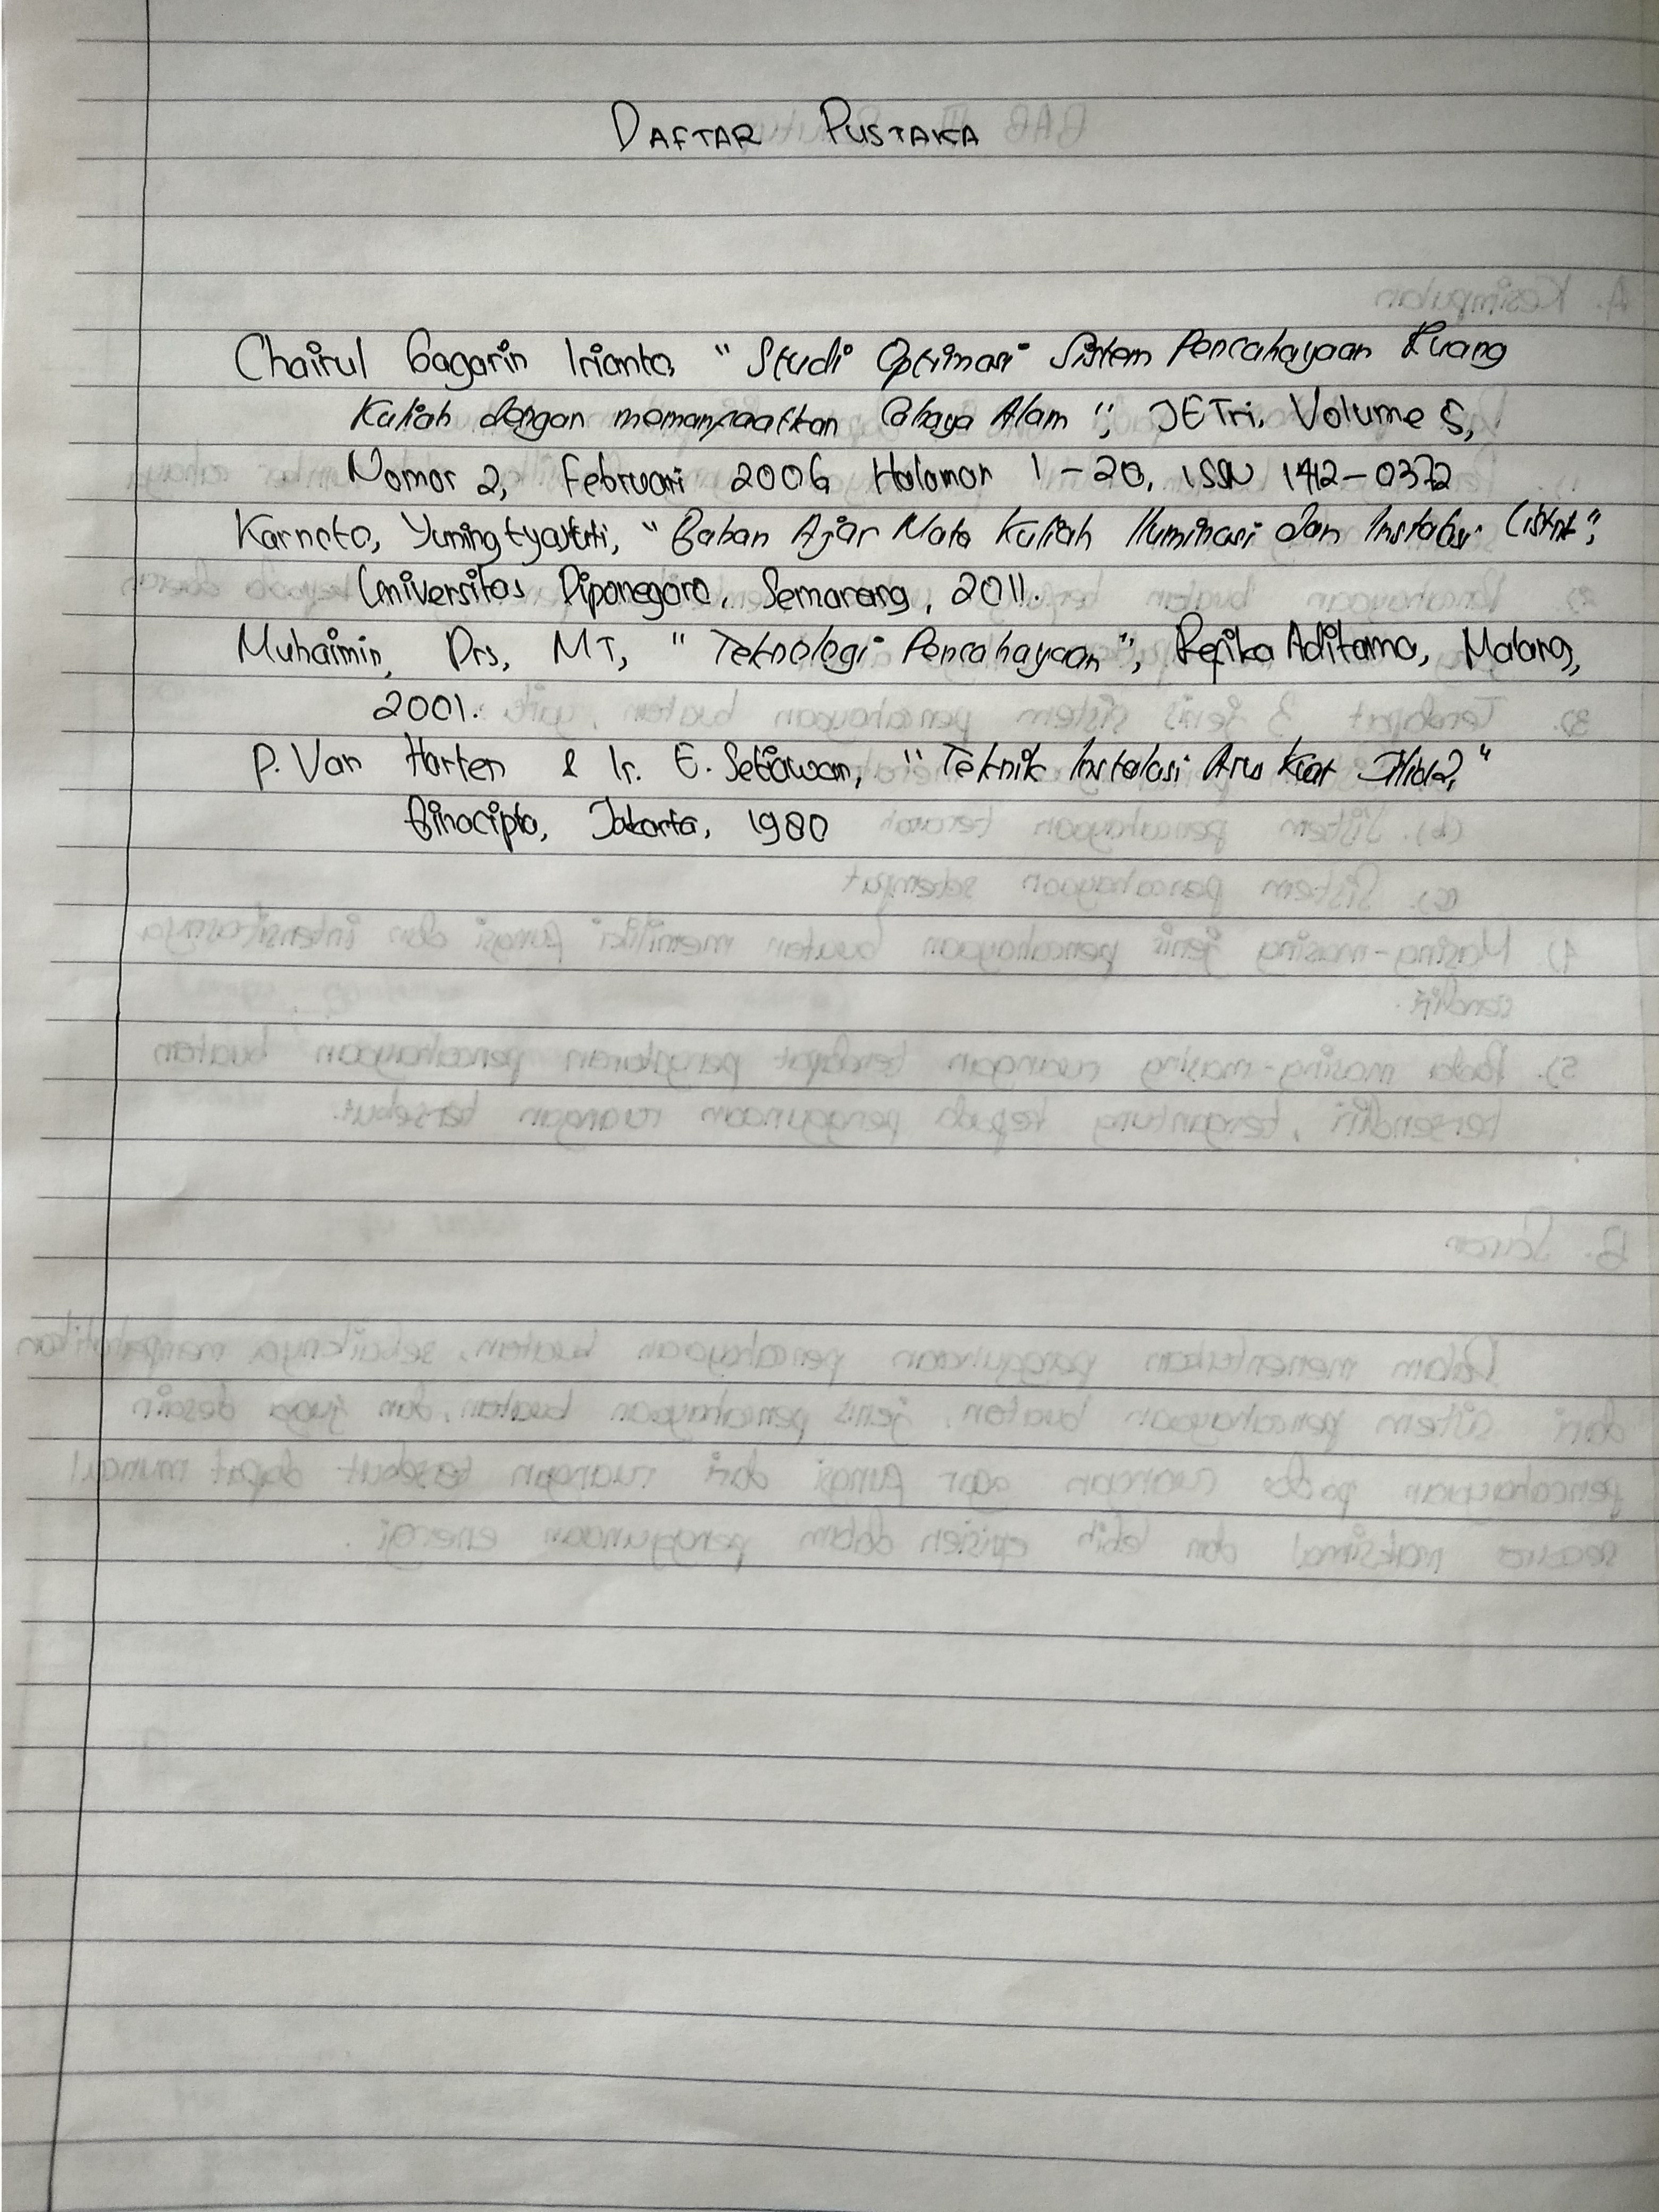 DAFTAR PUSTAKA
Chairul Gagarin Irianto, "Studi Optimasi Sistem Pencahayaan Ruang
Kuliah dengan memanfaatkan Cahaya Alam", JETri, Volume 5,
Nomor 2, Februari 2006 Halaman 1-20, ISSN 1412-0372
Karnoto, Yuningtyastuti, "Bahan Ajar Mata Kuliah Iluminasi dan Instalasi Listrik",
Universitas Diponegoro, Semarang, 2011.
Muhaimin, Drs, MT, "Teknologi Pencahayaan", Refika Aditama, Malang,
2001.
P. Van Harten & Ir. E. Setiawan, "Teknik Instalasi Arus Kuat Jilid 2,"
Binacipta, Jakarta, 1980